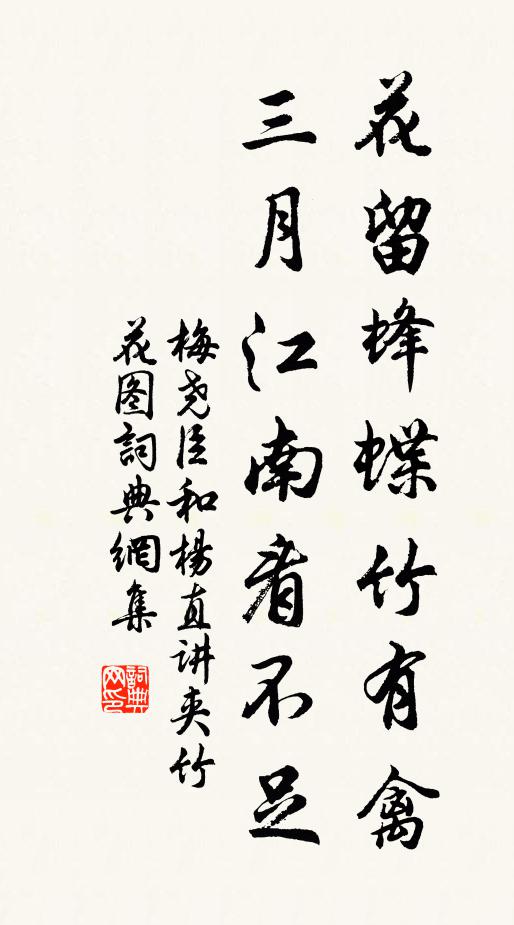 花留蜂蝶竹有禽
三月江南看不足
梅尧臣和楊直讲夹竹
花图詞典網集
詞典
网印